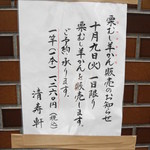 栗むし羊かん販売のお知らせ
十月九日(火)一日限り
栗むし羊かんを販売します。
ご予約承ります。
一竿(一本)一二六円(税込)
清寿軒